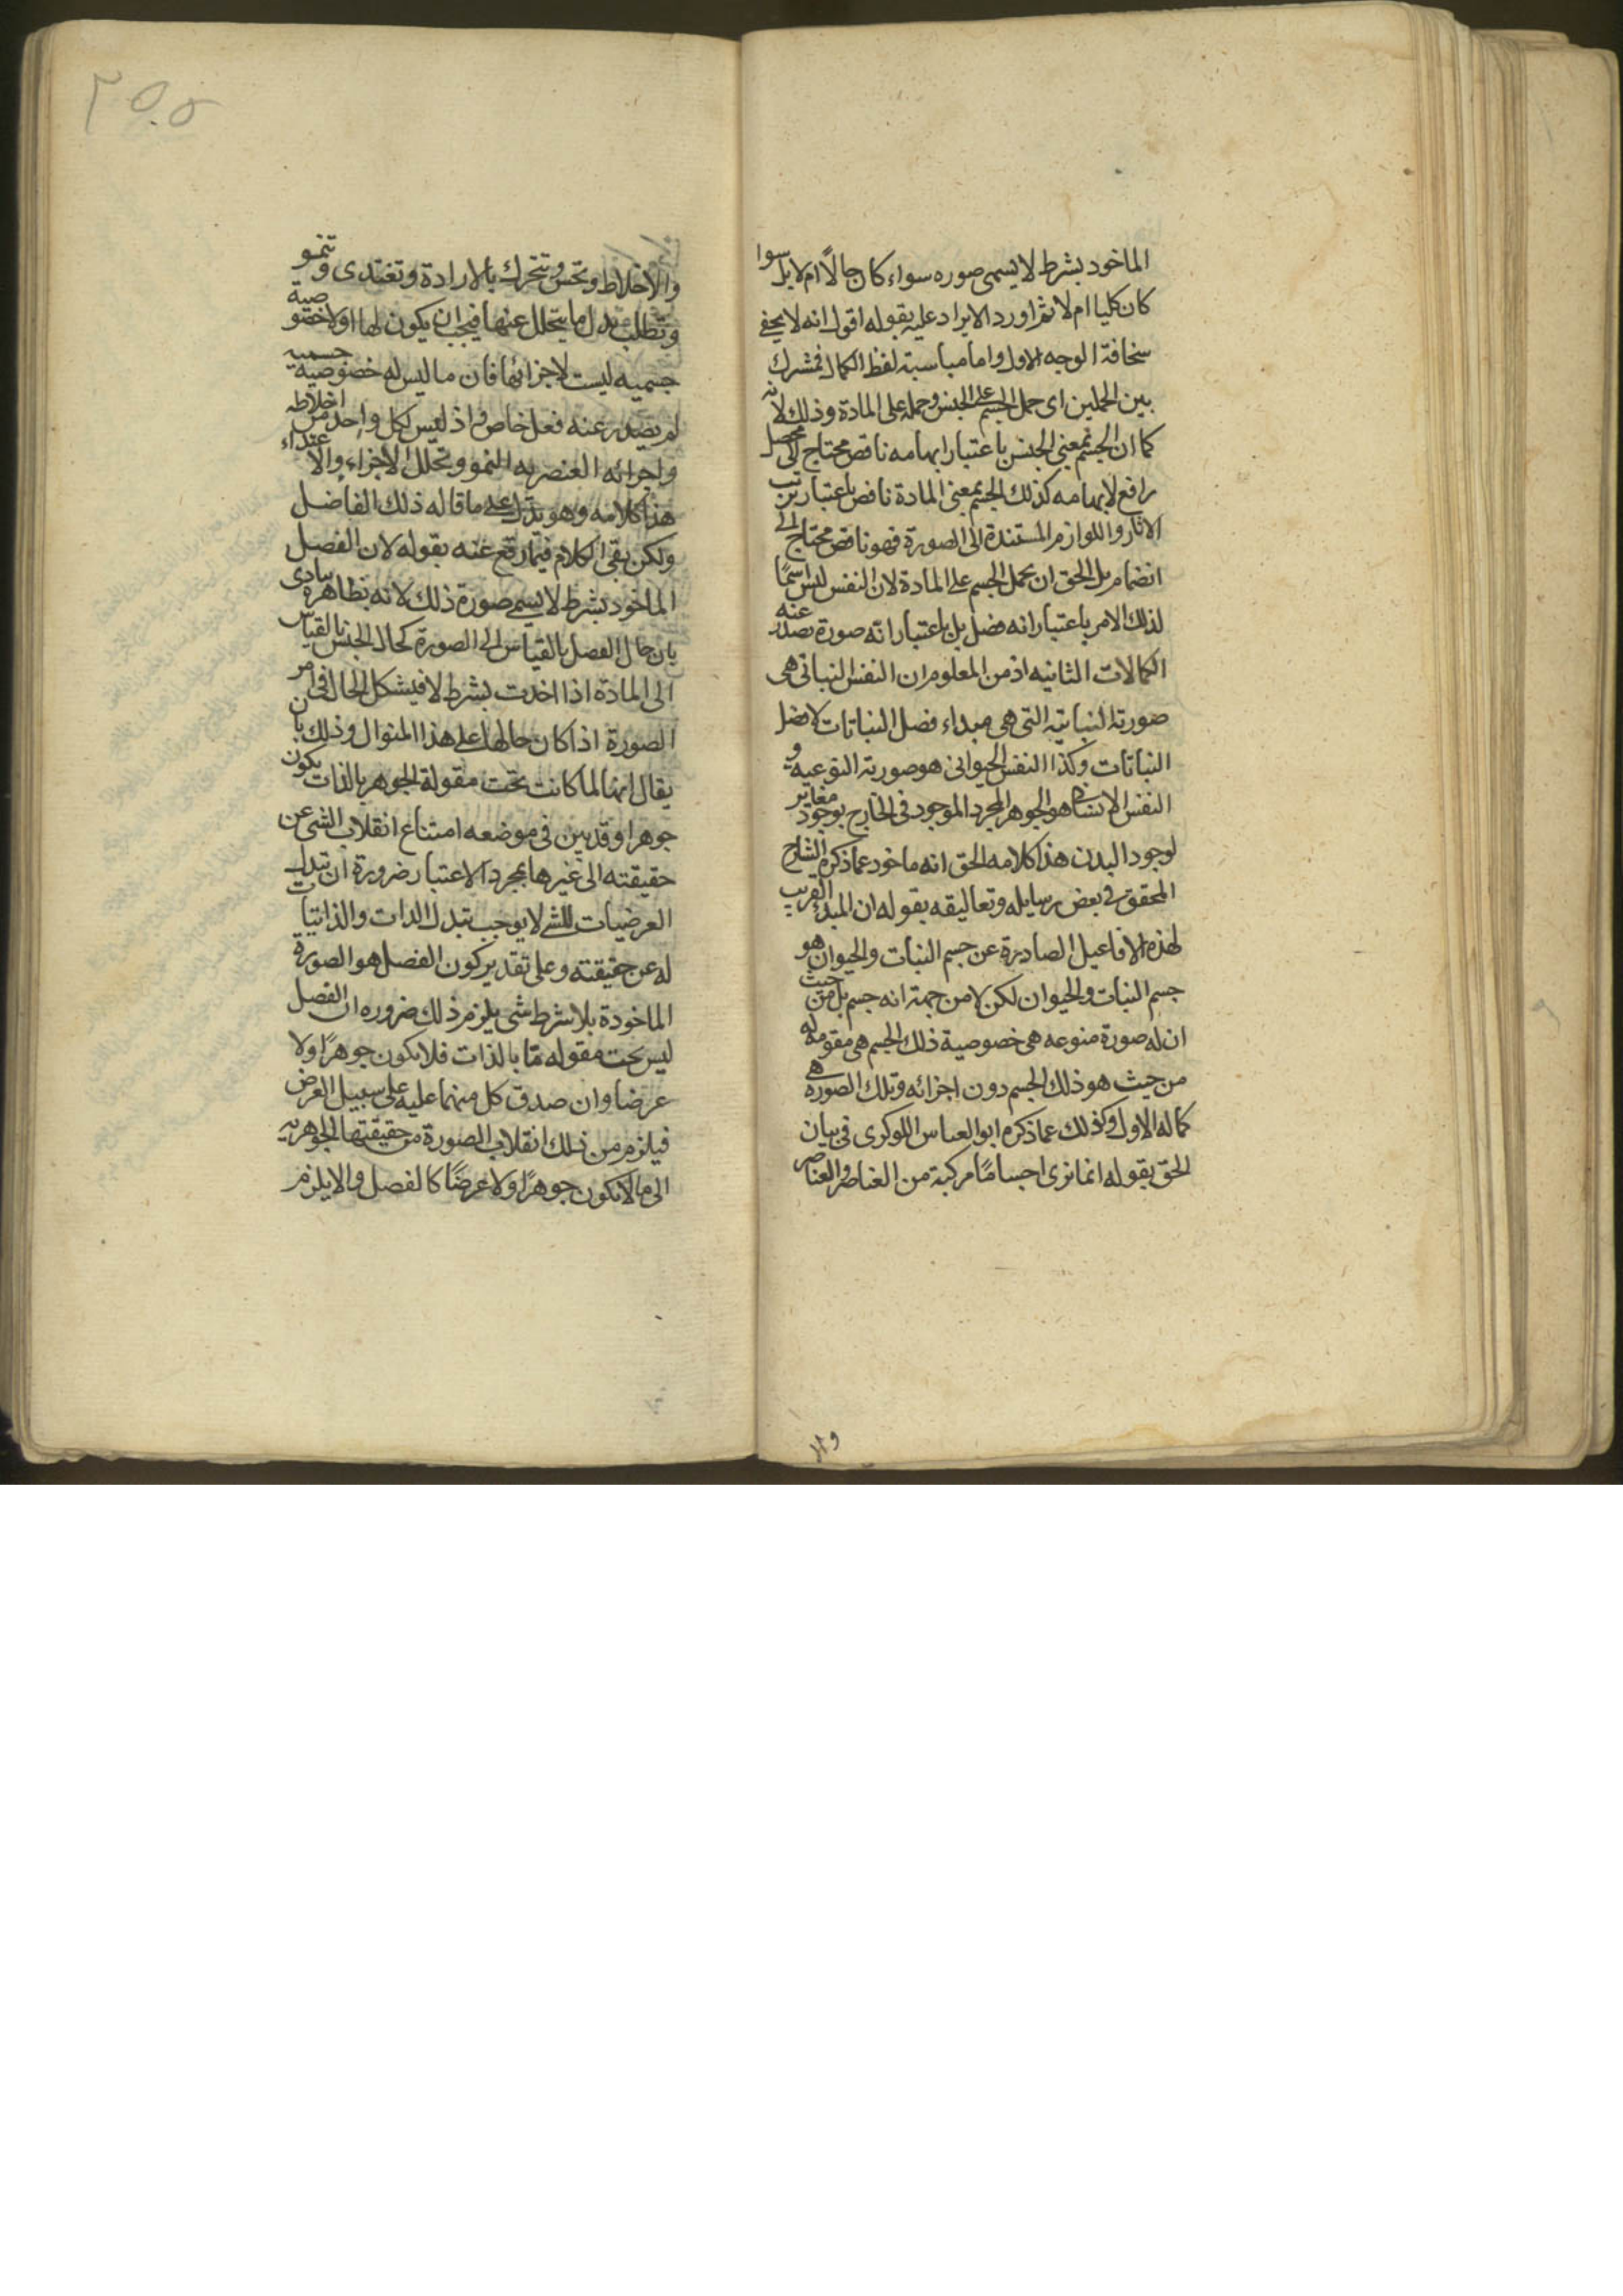 الماخود بشرط لا يسمى صوره سواء كان حالًا ام لا بل سوا
كان كليا ام لا ثم اورد الايراد عليه بقوله اقول انه لا يخفي
سخافة الوجه الاول واما مباسبة لفظ الكمال فمشترك
بين الحملين اى حمل الجسم على الجنس وحمله على المادة وذلك لانه
كما ان الجسم بمعنى الجنس باعتبار ابهامه ناقص محتاج الى محصل
رافع لابهامه كذلك الجسم بمعنى المادة ناقص باعتبار ترتب
الاثار واللوازم المستندة الى الصورة فهو ناقص محتاج الى
انضمام بل الحق ان يحمل الجسم على المادة لان النفس ليس اسمًا
لذلك الامر باعتبار انه فصل بل باعتبار انه صورة تصدر عنه
الكمالات الثانيه اذ من المعلوم ان النفس النباتى هى
صورته النباتية التى هى مبداء فصل النباتات لا فصل
النباتات وكذا النفس الحيوانى هو صورته النوعيه و
النفس الانسانى هو الجوهر المجرد الموجود فى الخارج بوجود مغاير
لوجود البدن هذا كلامه الحق انه ماخود عما ذكره الشارح
المحقق فى بعض رسايله وتعاليقه بقوله ان المبدء القريب
لهذه الافاعيل الصادرة عن جسم النبات والحيوان هو
جسم النبات والحيوان لكن لا من جهة انه جسم بل من حيث
ان له صورة منوعه هى خصوصية ذلك الجسم هى مقومة له
من حيث هو ذلك الجسم دون اجزائه وتلك الصورة هى
كماله الاول وكذلك عما ذكره ابو العباس اللوكرى فى بيان
الحق بقوله انما نرى اجسامًا مركبة من العناصر والعناصر
والا
٣٥٥
والاخلاط وتحس وتتحرك بالارادة وتغتدى وتنمو
وتطلب بدل ما يتحلل عنها فيجب ان يكون لها اولا خصوصية
جسميه ليست لاجزائها فان ما ليس له خصوصية جسميه
لم يصدر عنه فعل خاص واذ ليس لكل واحد من اخلاطه
واجزائه العنصريه النمو وتحلل الاجزاء والاغتداء
هذا كلامه وهو يدل على ما قاله ذلك الفاضل
ولكن بقى الكلام فيما وقع عنه بقوله لان الفصل
الماخود بشرط لا يسمى صورة ذلك لانه بظاهره ينادى
بان حال الفصل بالقياس الى الصورة كحال الجنس بالقياس
الى المادة اذا اخذت بشرط لا فيشكل الحال فى امر
الصورة اذا كان حالها على هذا المنوال وذلك بان
يقال انها لما كانت تحت مقولة الجوهر بالذات يكون
جوهرا وقد بين فى موضعه امتناع انقلاب الشى عن
حقيقته الى غيرها بمجرد الاعتبار ضرورة ان تبدل
العرضيات للشى لا يوجب تبدل الذات والذاتيات
له عن حقيقته وعلى تقدير كون الفصل هو الصورة
الماخودة بلا شرط شى يلزم ذلك ضروره ان الفصل
ليس تحت مقوله مّا بالذات فلا يكون جوهرًا ولا
عرضا وان صدق كل منهما عليه على سبيل العرض
فيلزم من ذلك انقلاب الصورة من حقيقتها الجوهريه
الى ما لا يكون جوهرًا ولا عرضًا كالفصل والا يلزم